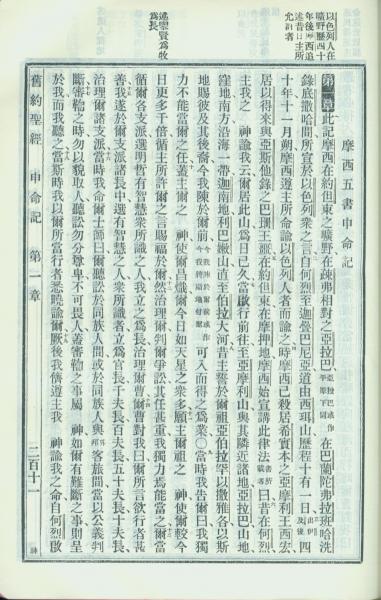 以色列人在
曠野歷四十
年後摩西追
述昔日主所
允許者
述舉賢爲牧
爲長
摩西五書申命記
第一章 此記摩西在約但東之曠野在疎弗相對之亞拉巴 在巴蘭陀弗拉班哈洗
錄底撒哈間所宣於以色列衆之言自何烈至迦疊巴尼亞道由西珥山歷程十有一日 出伊及後 四
十年十一月朔摩西遵主所命諭以色列人者而諭之時摩西已殺居希實本之亞摩利王西宏
居以得來與亞斯他錄之巴珊王噩在約但東在摩押地摩西始宣講此律法 書所載者 曰昔在何烈
主我之 神諭我云爾居此山爲日已久當啟行前往至亞摩利山與其隣近諸地亞拉巴山地
窪地南方沿海一帶迦南地利巴嫩山直至伯拉大河昔主誓於爾祖亞伯拉罕以撒雅各以斯
地賜彼及其後裔今我陳於爾前 可入而得之爲業○當時我告爾曰我獨
力不能當爾之任蓋主爾之 神使爾昌熾爾今日如天星之衆多願主爾祖之 神使爾較今
日更多千倍循主所許爾之言賜福於爾然治理爾判爾爭訟其任甚重我獨力焉能當之爾當
循爾各支派選明哲有智慧衆所識之人我立之爲長治理爾曹爾曹對我曰爾所言欲行者甚
善我遂於爾支派諸長中選有智慧之人衆所識者立爲官長千夫長百夫長五十夫長十夫長
治理爾諸支派當時我命爾士師曰爾聽訟於同族人間或於同族人與 客旅間當以公義判
斷審鞫之時勿以貌取人聽訟勿分尊卑不可畏人蓋審鞫之事屬 神如爾有難斷之事則呈
於我而我聽之當斯時我以爾所當行者悉曉諭爾厥後我儕遵主我 神諭我之命自何烈啟
舊約聖經 申命記 第一章 二百十一